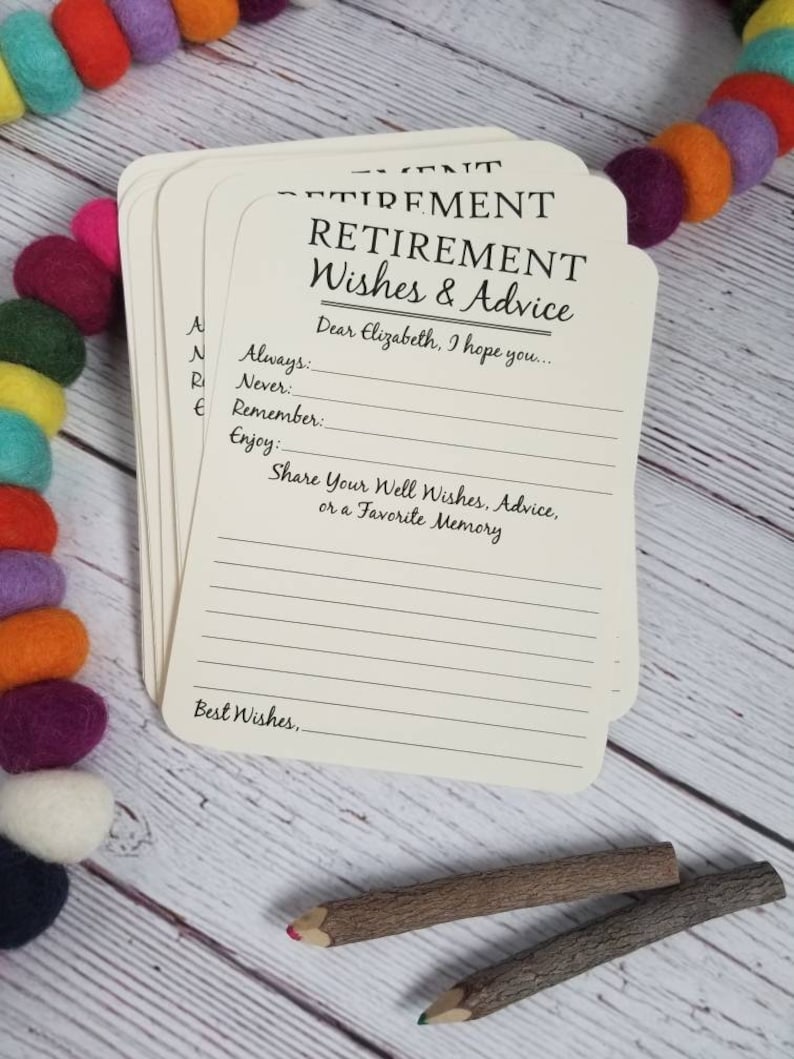 MENT
RETIREMENT
RETIREMENT
Wishes & Advice
Dear Elizabeth, I hope you...
Always:
Never:
Remember:
Enjoy:
Share Your Well Wishes, Advice,
or a Favorite Memory
Best Wishes,
A
N
Re
E